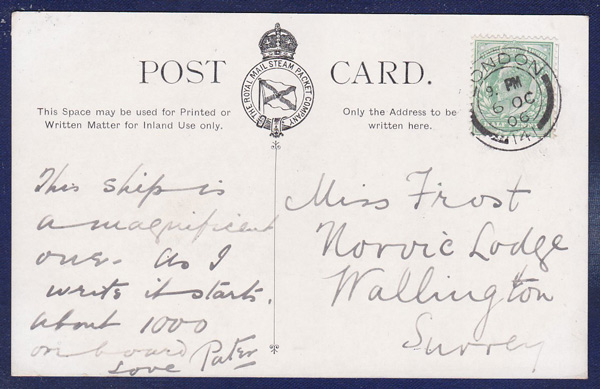 POST CARD.
THE ROYAL MAIL STEAM PACKET COMPANY
This Space may be used for Printed or
Written Matter for Inland Use only.
Only the Address to be
written here.
LONDON
9. PM
6 OC
06
14
This ship is
a magnificent
one. As I
write it starts.
about 1000
on board
Love Pater
Miss Frost
Norvic Lodge
Wallington
Surrey